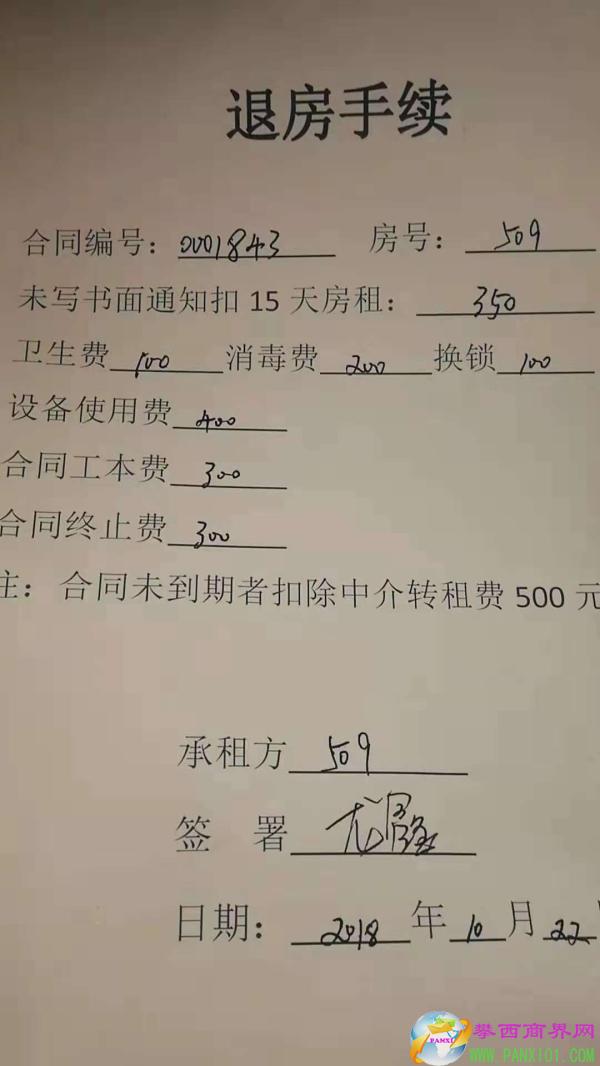 退房手续
合同编号：0001843 房号：509
未写书面通知扣15天房租：350
卫生费100 消毒费200 换锁100
设备使用费400
合同工本费300
合同终止费300
注：合同未到期者扣除中介转租费500元
承租方509
签 署
日期：2018年10月22
攀西商界网
PANXI
WWW.PANXI01.COM